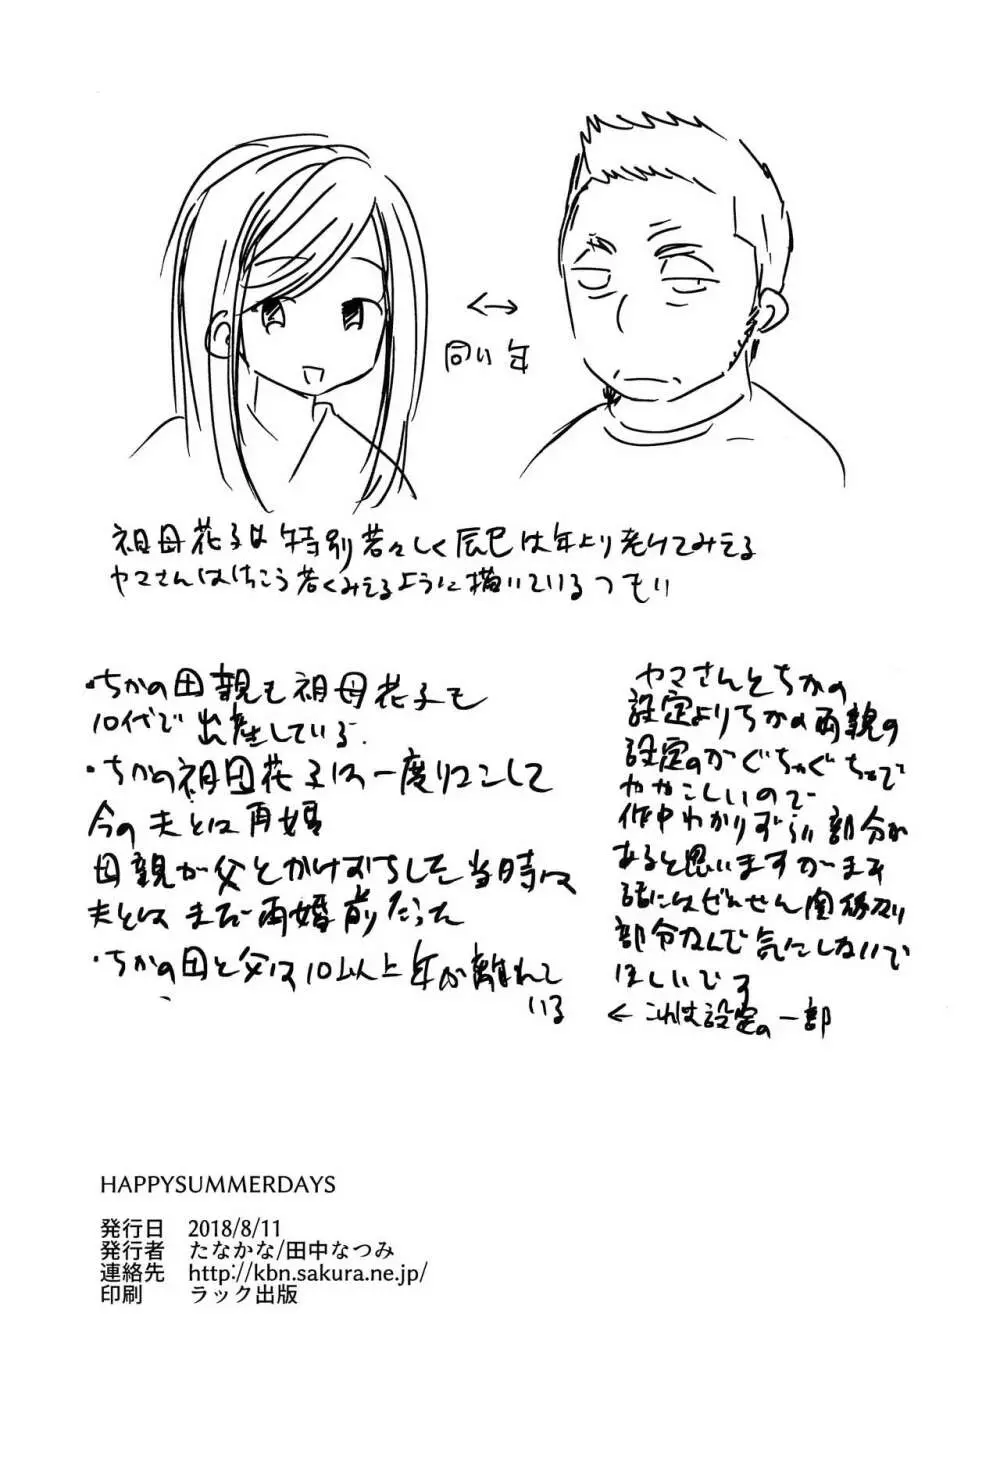 同い年
祖母花子は特別若々しく辰巳は年より老けてみえる
ヤマさんはけっこう若くみえるように描いているつもり
・ちかの母親も祖母花子も
10代で出産している。
・ちかの祖母花子は一度リコンして
今の夫とは再婚
母親が父とかけおちした当時は
夫とはまだ再婚前だった
・ちかの母と父は10以上年が離れて
いる
ヤマさんとちかの
設定よりちかの両親の
設定のがぐちゃぐちゃで
ややこしいので
作中わかりずらい部分が
あると思いますがまあ
話にはぜんぜん関係ない
部分なんで気にしないで
ほしいです
← これは設定の一部
HAPPYSUMMERDAYS
発行日 2018/8/11
発行者 たなかな/田中なつみ
連絡先 http://kbn.sakura.ne.jp/
印刷 ラック出版